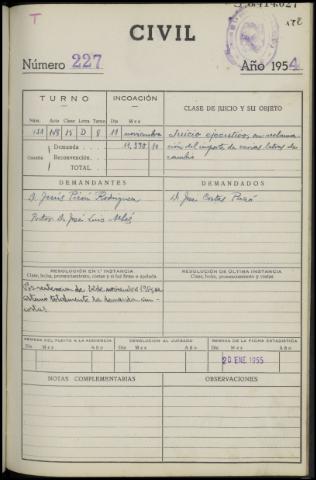 T
CIVIL
Número 227
Año 1954
TURNO
INCOACIÓN
CLASE DE JUICIO Y SU OBJETO
Núm. Año Clase Letra Turno Día Mes
D 8 11 noviembre
Juicio ejecutivo, en reclama-
ción del importe de varias letras de
cambio
Cuantía
Demanda
Reconvención
TOTAL
DEMANDANTES
DEMANDADOS
D. Jesús Rodríguez
D. José Luis
D. Juan Cortes
RESOLUCIÓN EN 1.ª INSTANCIA
Clase, fecha, pronunciamiento, costas y si fué firme o apelada
RESOLUCIÓN DE ÚLTIMA INSTANCIA
Clase, fecha, pronunciamiento y costas
Por sentencia de noviembre
totalmente la demanda con
costas
REMESA DEL PLEITO A LA AUDIENCIA
DEVOLUCIÓN AL JUZGADO
REMESA DE LA FICHA ESTADÍSTICA
Día Mes Año
Día Mes Año
Día Mes Año
20 ENE. 1955
NOTAS COMPLEMENTARIAS
OBSERVACIONES